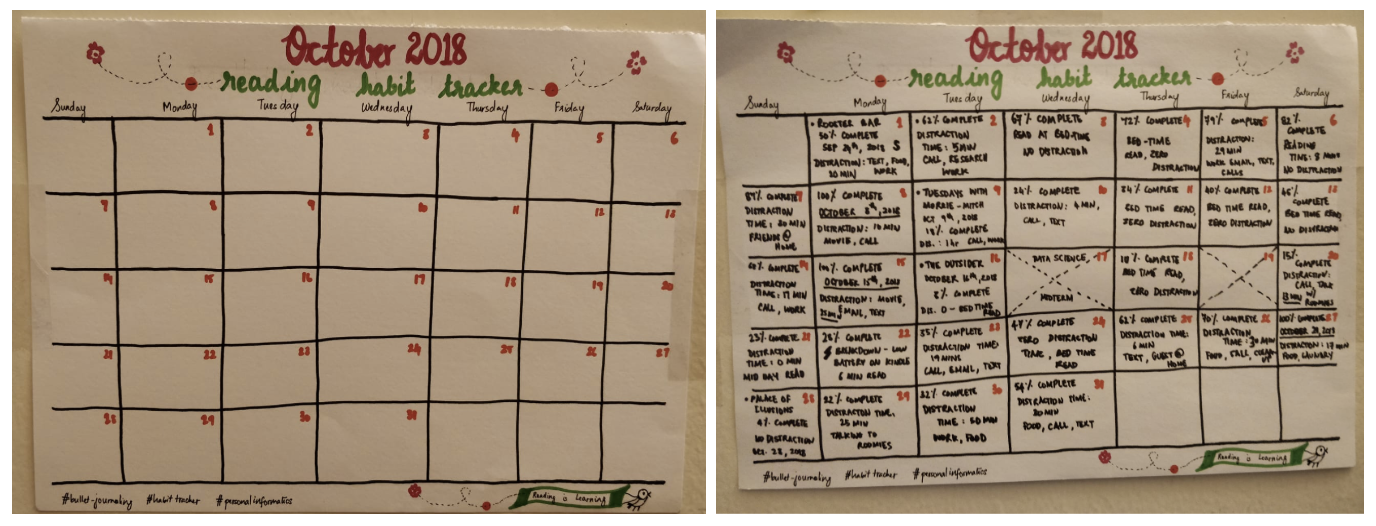 October 2018
reading habit tracker
Sunday Monday Tuesday Wednesday Thursday Friday Saturday
1 2 3 4 5 6
7 8 9 10 11 12 13
14 15 16 17 18 19 20
21 22 23 24 25 26 27
28 29 30 31
#bullet-journaling #habit tracker #personal informatics
Reading is Learning
October 2018
reading habit tracker
Sunday Monday Tuesday Wednesday Thursday Friday Saturday
• ROOSTER BAR 1
50% COMPLETE
SEP 29th, 2018
DISTRACTION: TEXT, FOOD,
20 MIN WORK
• 62% COMPLETE 2
DISTRACTION
TIME: 5 MIN
CALL, RESEARCH
WORK
67% COMPLETE 3
READ AT BED-TIME
NO DISTRACTION
72% COMPLETE 4
BED-TIME
READ, ZERO
DISTRACTION
79% COMPLETE 5
DISTRACTION:
29 MIN
WORK EMAIL, TEXT,
CALLS
82% 6
COMPLETE
READING
TIME: 8 MINS
NO DISTRACTION
87% COMPLETE 7
DISTRACTION
TIME: 30 MIN
FRIENDS @
HOME
100% COMPLETE 8
OCTOBER 8th, 2018
DISTRACTION: 10 MIN
MOVIE, CALL
• TUESDAYS WITH 9
MORRIE - MITCH
OCT 9th, 2018
18% COMPLETE
DIS.: 1 hr CALL, WORK
24% COMPLETE 10
DISTRACTION: 4 MIN,
CALL, TEXT
34% COMPLETE 11
BED TIME READ,
ZERO DISTRACTION
40% COMPLETE 12
BED TIME READ,
ZERO DISTRACTION
46% 13
COMPLETE
BED TIME READ
NO DISTRACTION
COMPLETE 14
DISTRACTION
TIME: 17 MIN
CALL, WORK
100% COMPLETE 15
OCTOBER 15th, 2018
DISTRACTION: MOVIE,
EMAIL, TEXT
• THE OUTSIDER 16
OCTOBER 16th, 2018
8% COMPLETE
DIS. 0 - BEDTIME
READ
DATA SCIENCE, 17
MIDTERM
COMPLETE 18
BED TIME READ,
ZERO DISTRACTION
19
15% 20
COMPLETE
DISTRACTION:
CALL, TALK
W/
ROOMIES
23% COMPLETE 21
DISTRACTION
TIME: 0 MIN
MID DAY READ
COMPLETE 22
BREAKDOWN - LOW
BATTERY ON KINDLE
6 MIN READ
35% COMPLETE 23
DISTRACTION TIME:
19 MINS
CALL, EMAIL, TEXT
47% COMPLETE 24
ZERO DISTRACTION
TIME, BED TIME
READ
62% COMPLETE 25
DISTRACTION TIME:
6 MIN
TEXT, GUEST @
HOME
70% COMPLETE 26
DISTRACTION
TIME: 30 MIN
FOOD, CALL,
100% COMPLETE 27
OCTOBER
DISTRACTION: MIN
FOOD, LAUNDRY
• PALACE OF 28
ILLUSIONS
4% COMPLETE
NO DISTRACTION
OCT. 28, 2018
22% COMPLETE 29
DISTRACTION TIME:
25 MIN
TALKING TO
ROOMIES
32% COMPLETE 30
DISTRACTION
TIME: 50 MIN
WORK, FOOD
54% COMPLETE 31
DISTRACTION TIME:
30 MIN
FOOD, CALL, TEXT
#bullet-journaling #habit tracker #personal informatics
Reading is Learning